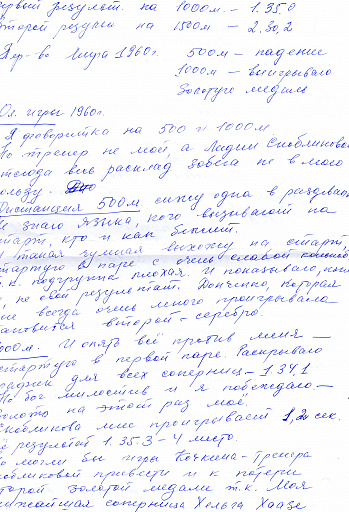 первый результ. на 1000м. – 1.35.0
второй результ на 1500м – 2.30,2
Пер-во Мира 1960г. 500м – падение
1000м – выигрываю
Золотую медаль
Ол. игры 1960г.
Я фаворитка на 500 и 1000м
Но тренер не мой, а Лидии Скобликовой
отсюда весь расклад забега не в мою
пользу.
Дистанция 500м сижу одна в раздевалке
не знаю языка, кого вызывают на
старт, кто и как бежит.
И такая
выхожу на старт,
стартую в паре с очень слабой
т.к. подгруппа плохая. И показываю,
но свой результат. Донченко, которая
мне всегда очень много проигрывала
становится второй – серебро.
1000м. И опять всё против меня –
стартую в первой паре. Раскрываю
для всех соперниц – 1.34,1
Но бог милостив и я побеждаю –
Золото на этот раз моё.
Скобликова мне проигрывает 1,2 сек.
её результат 1.35.3 – 4 место.
Но могли бы игры Кочкина – тренера
Скобликовой привести и к потери
второй золотой медали т.к. моя
ближайшая соперница Хельга Хаазе